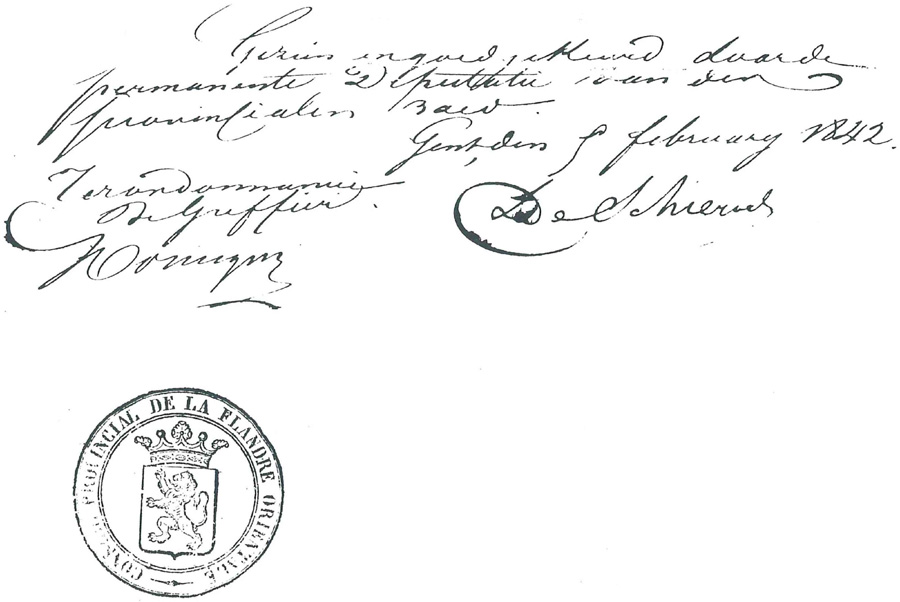 Gezien en goed gekeurd door de
permanente Deputatie van den
provincialen raed.
Gent, den 5 february 1842.
Ter ordonnancie
De Greffier.
De Schiervel
CONSEIL PROVINCIAL DE LA FLANDRE ORIENTALE